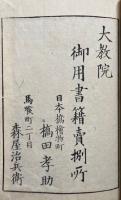 大教院
御用書籍賣捌所
日本橋檜物町
槗田孝助
馬喰町二丁目
森屋治兵衛